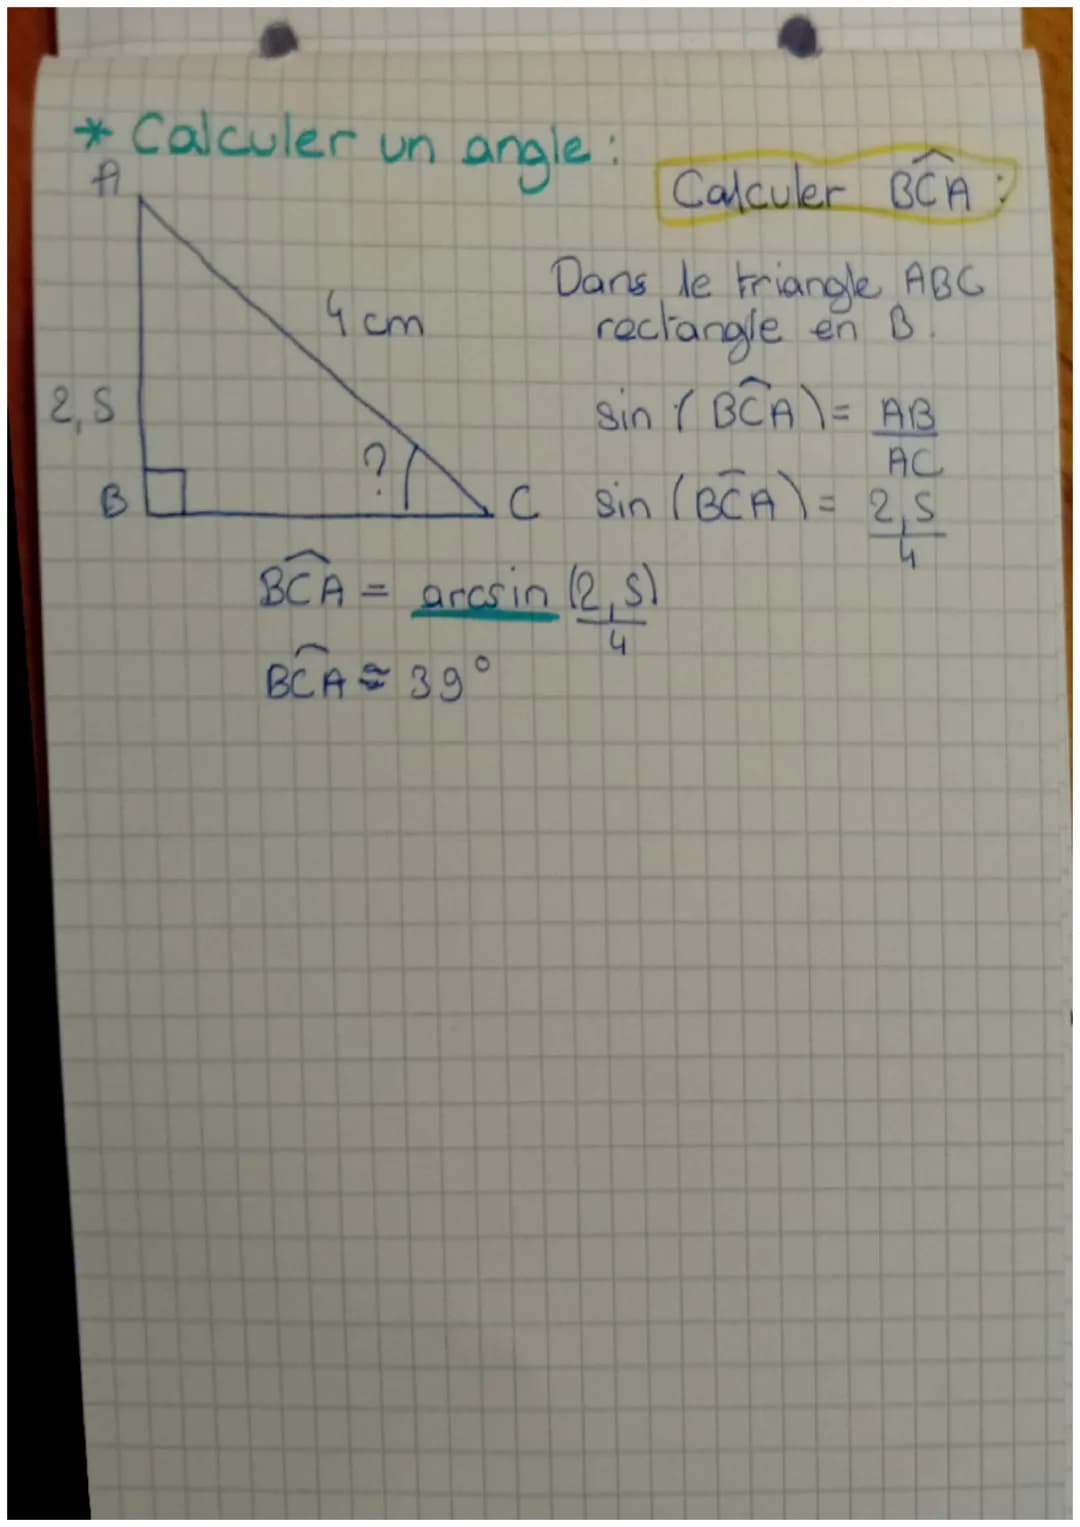 * Calculer un angle :
Calculer BĈA :
A
4 cm
2,5
?
B
C
Dans le triangle ABC
rectangle en B.
sin (BĈA) = AB
AC
sin (BĈA) = 2,5
4
BĈA = arcsin (2,5)
4
BĈA ≈ 39°